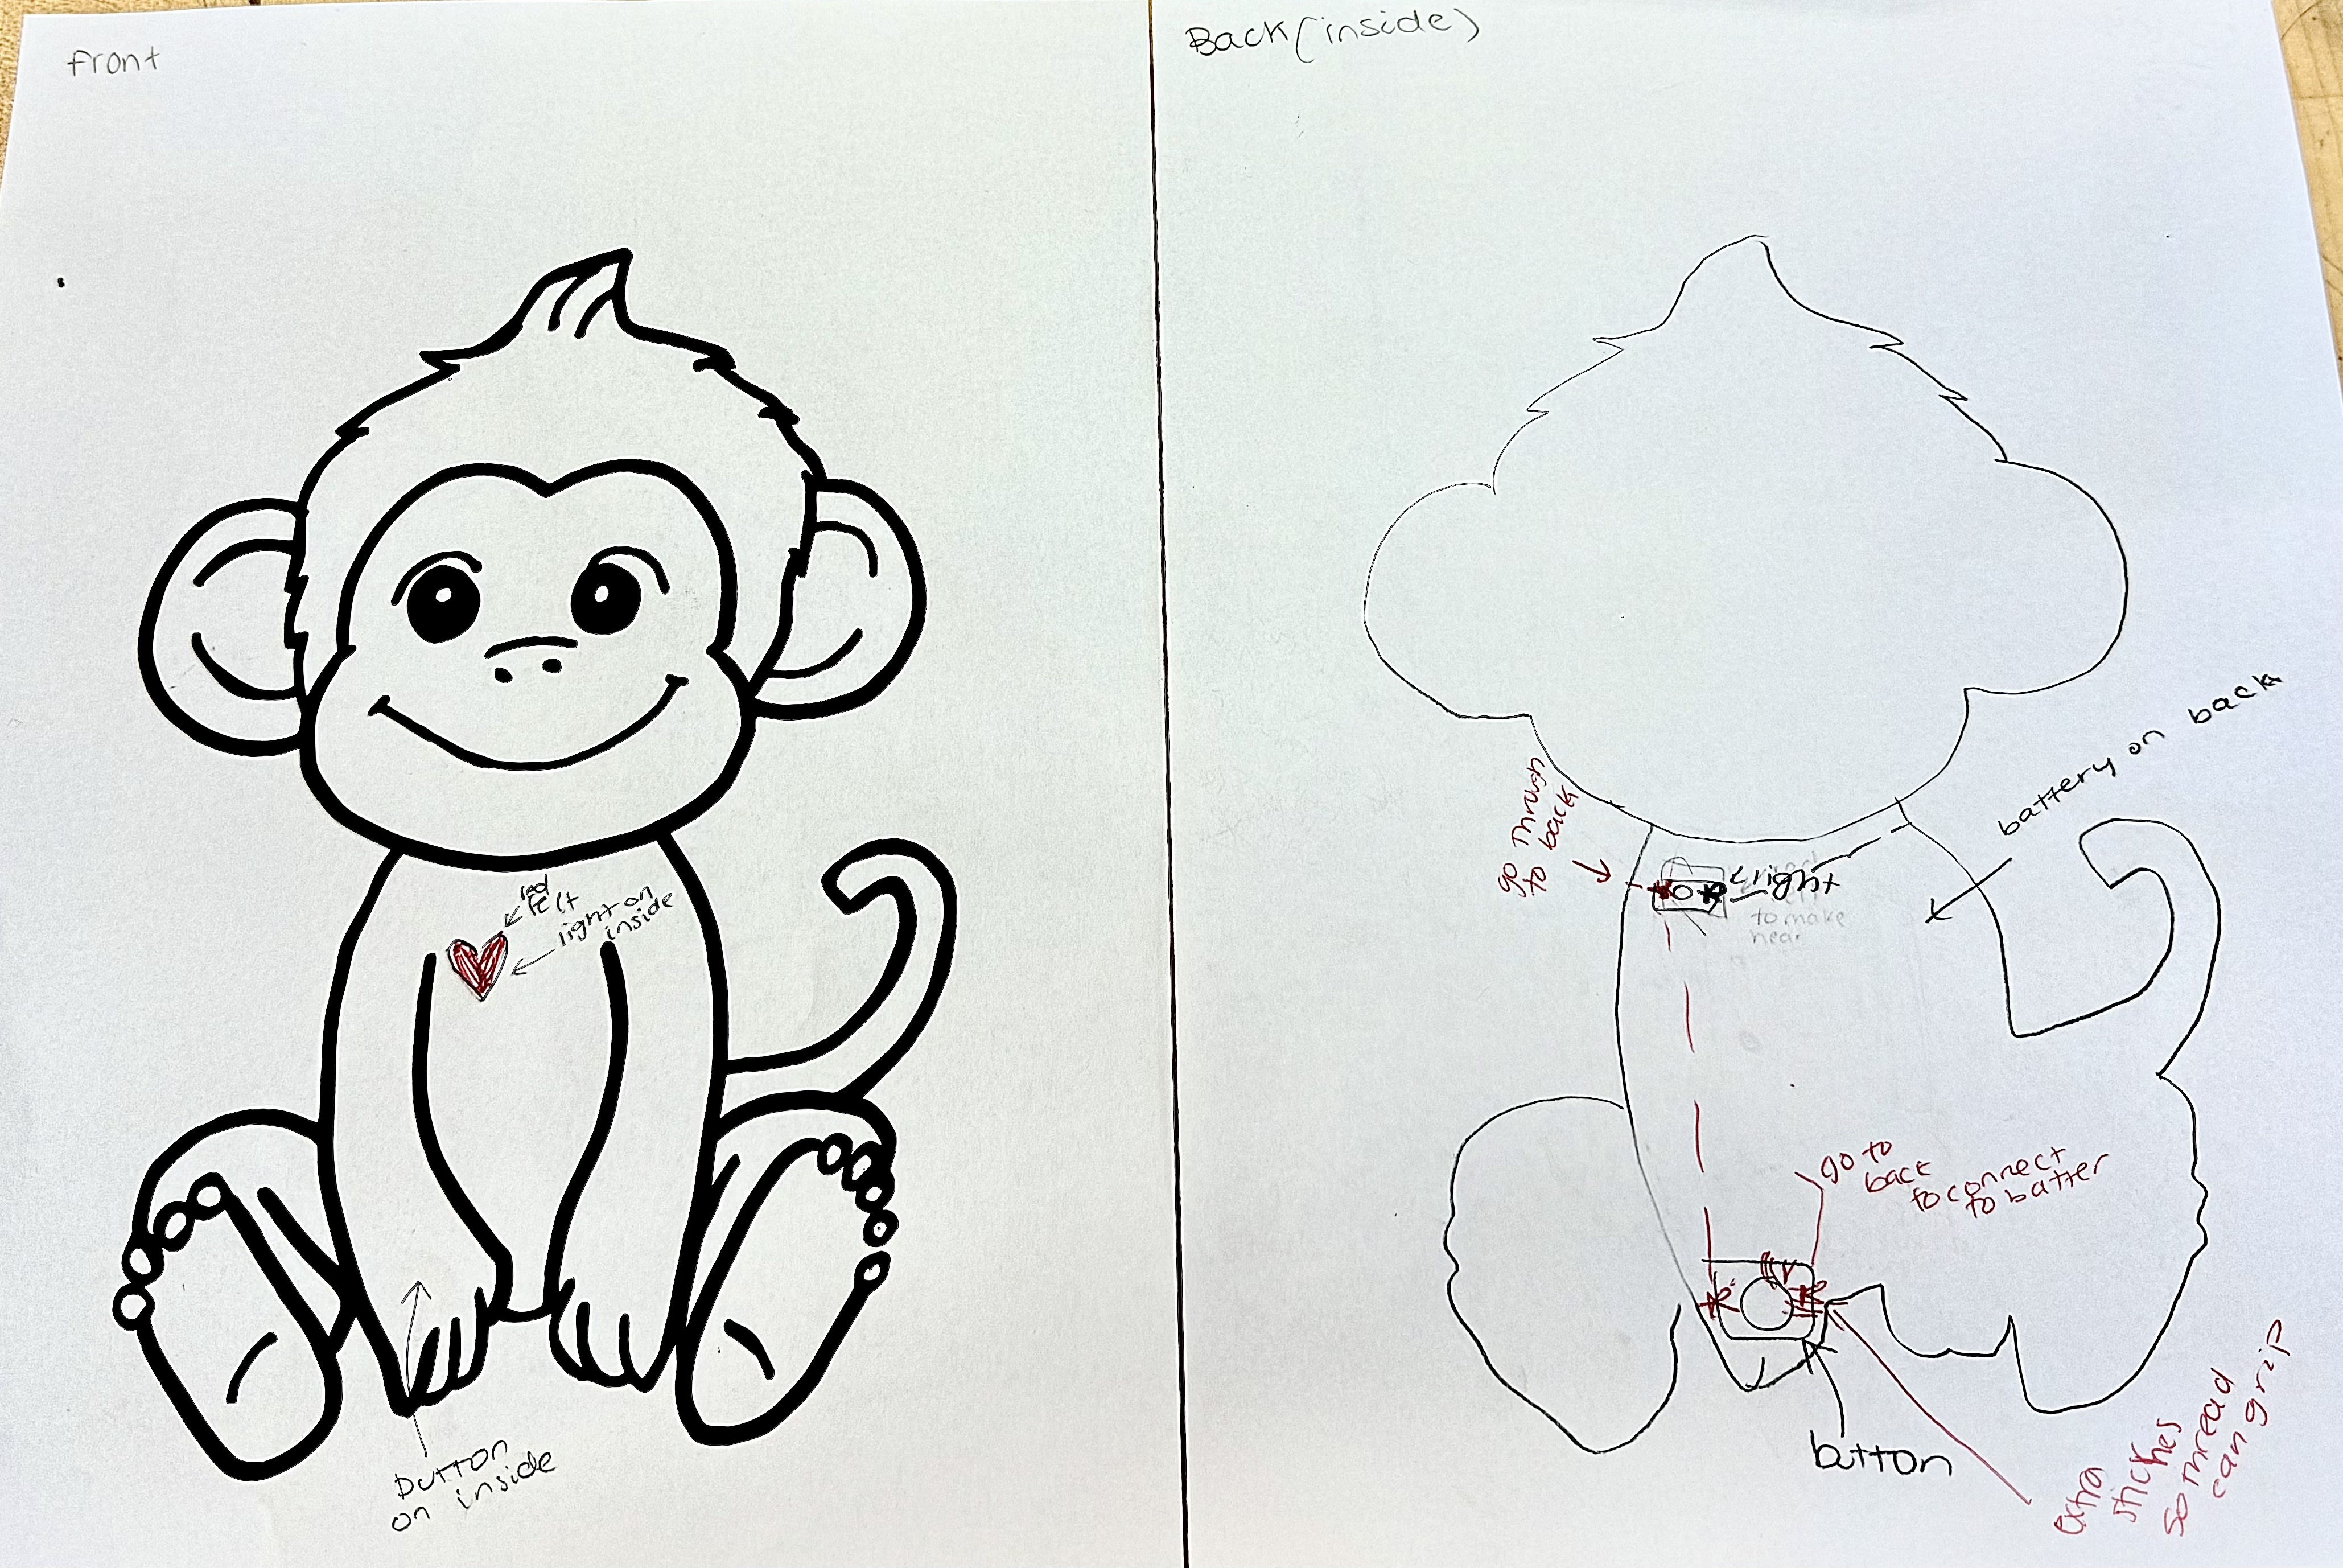 front
red
felt
light on
inside
button
on inside
Back (inside)
battery on back
go through
to back
light
to make
go to
back
to connect
to batter
button
extra
stiches
so thread
can grip